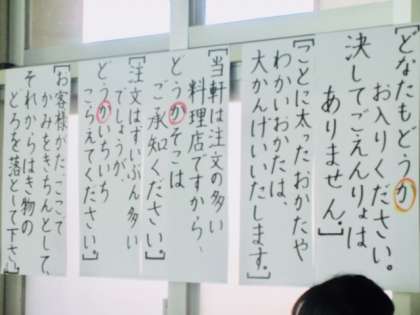 「どなたもどうか
お入りください。
決してごえんりょは
ありません。」
「ことに太ったおかたや
わかいおかたは、
大かんげいいたします。」
「当軒は注文の多い
料理店ですから、
どうかそこは
ご承知ください。」
「注文はずいぶん多い
でしょうが、
どうかいちいち
こらえてください。」
「お客様がた、ここで
かみをきちんとして、
それからはき物の
どろを落として下さい。」